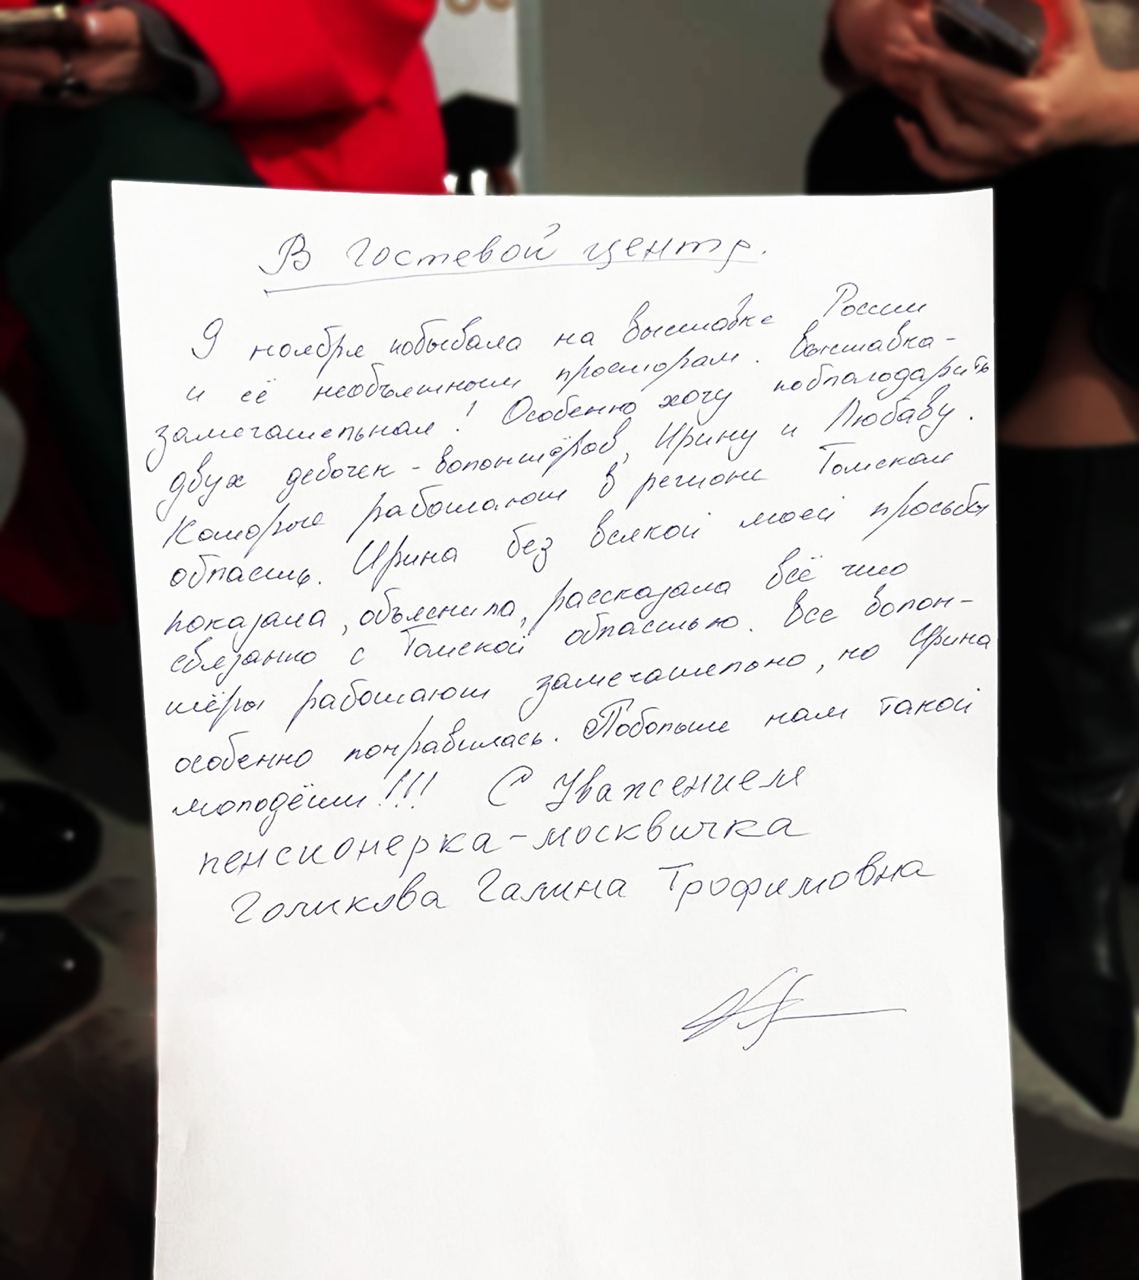 В Гостевой центр.
9 ноября побывала на выставке России
и её необъятным просторам. Выставка-
замечательная! Особенно хочу поблагодарить
двух девочек-волонтёров, Ирину и Любаву.
Которые работают в регионе Томская
область. Ирина без всякой моей просьбы
показала, объяснила, рассказала всё что
связанно с Томской областью. Все волон-
тёры работают замечательно, но Ирина
особенно понравилась. Побольше нам такой
молодёжи!!! С Уважением
пенсионерка-москвичка
Голикова Галина Трофимовна